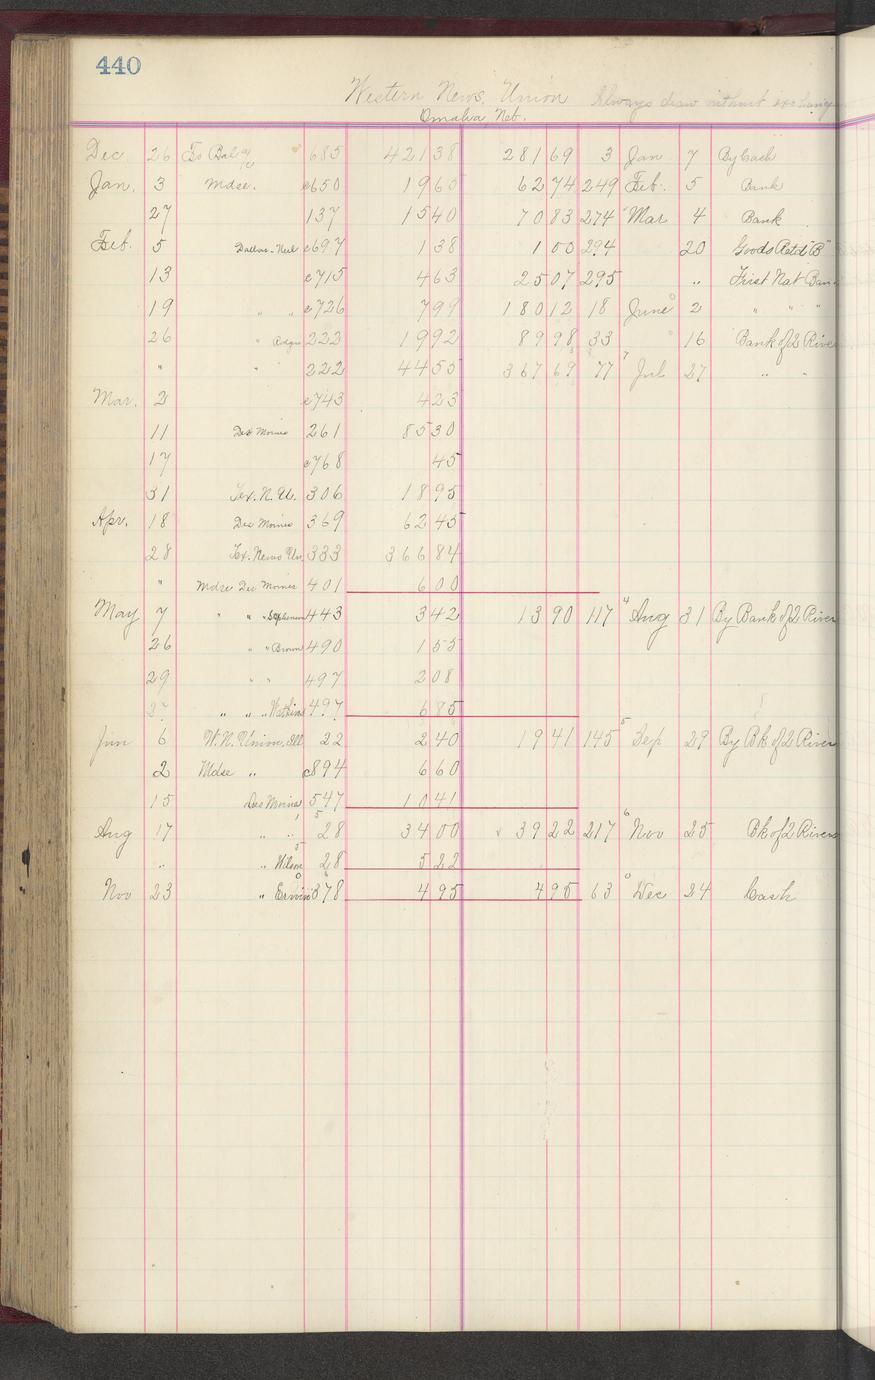 440
Western News Union Always draw without exchange
Omaha, Neb.
Dec 26 To Bal 685 421 38 281 69 3 Jan 7 By Cash
Jan. 3 Mdse. c650 19 60 62 74 249 Feb. 5 Bank
27 137 15 40 70 83 274 Mar 4 Bank
Feb. 5 Dallas. c697 1 38 1 00 294 20 Goods Retd "B"
13 c715 4 63 25 07 295 " First Nat Ban
19 " " c726 7 99 180 12 18 June 2 " " "
26 " 222 19 92 89 98 33 16 Bank of 2 Rive
" " 222 44 55 367 69 77 Jul 27 " "
Mar. 2 c743 4 23
11 Des Moines 261 85 30
17 c768 45
31 Tex. N. U. 306 18 95
Apr. 18 Des Moines 369 62 45
28 Tex. News Un. 333 366 84
" Mdse Des Moines 401 6 00
May 7 " " " Stephenson 443 3 42 13 90 117 4 Aug 31 By Bank of 2 River
26 " " Brown 490 1 55
29 " " 497 2 08
27 " " " Watkins 497 6 85
Jun 6 W. N. Union, Ill 22 2 40 19 41 145 5 Sep 29 By Bk of 2 River
2 Mdse " c894 6 60
15 Des Moines 547 10 41
Aug 17 " " 28 34 00 39 22 217 6 Nov 25 Bk of 2 Rivers
" " Wilson 28 5 22
Nov 23 " Erwin 378 4 95 4 95 63 Dec 24 Cash